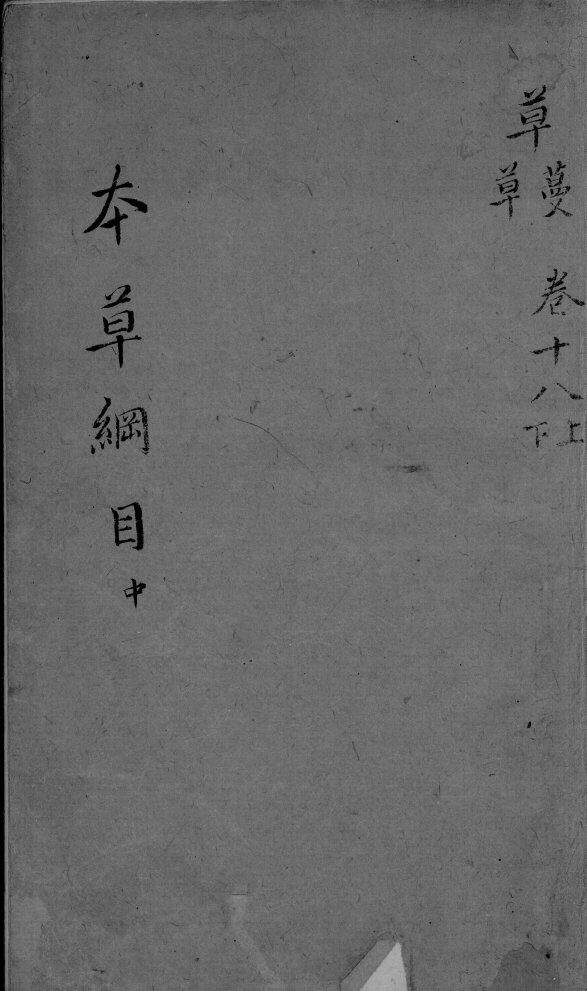 草
蔓
草
卷十八上
下
本草綱目中